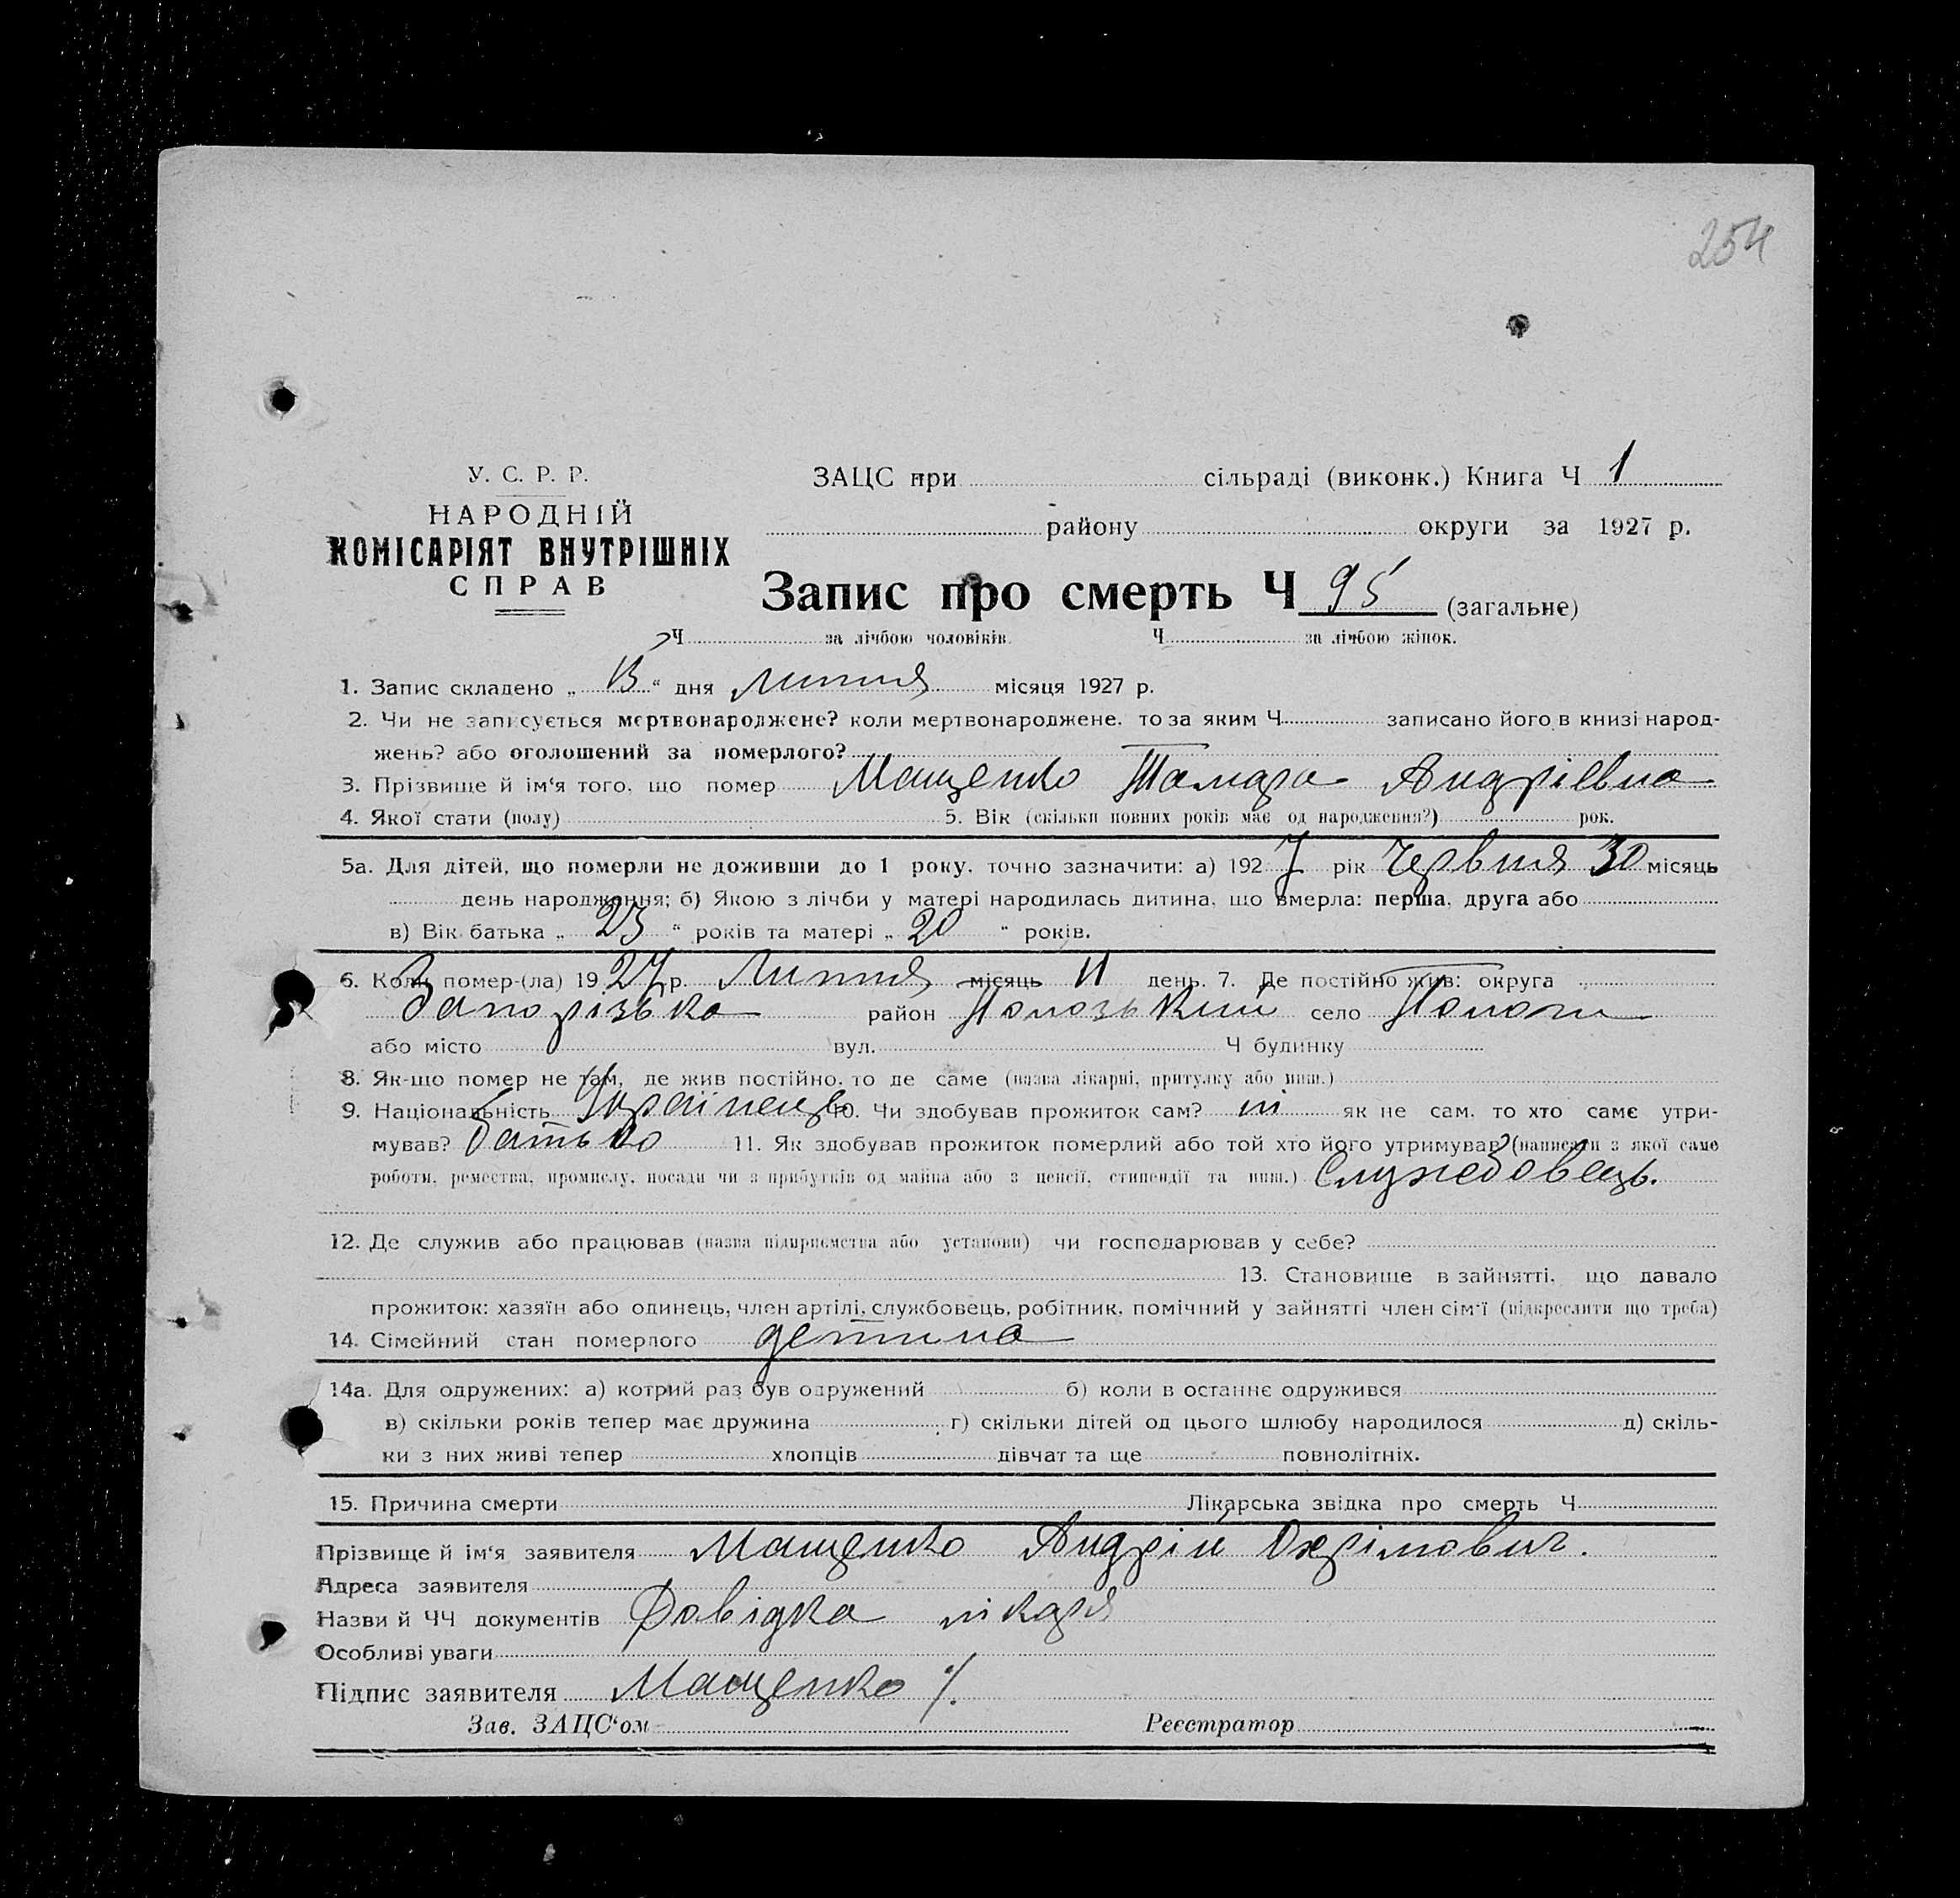 254
У. С. Р. Р.
НАРОДНІЙ
КОМІСАРІЯТ ВНУТРІШНІХ
СПРАВ
ЗАЦС при сільраді (виконк.) Книга Ч 1
району округи за 1927 р.
Запис про смерть Ч 95 (загальне)
Ч за лічбою чоловіків. Ч за лічбою жінок.
1. Запис складено „ 13 “ дня Липня місяця 1927 р.
2. Чи не записується мертвонароджене? коли мертвонароджене, то за яким Ч записано його в книзі народ-
жень? або оголошений за померлого?
3. Прізвище й ім‘я того, що помер Мащенко Тамара Андріевна
4. Якої стати (полу) 5. Вік (скільки повних років має од народження?) рок.
5а. Для дітей, що померли не доживши до 1 року, точно зазначити: а) 1927 рік Червня 30 місяць
день народження; б) Якою з лічби у матері народилась дитина, що вмерла: перша, друга або
в) Вік батька „ 23 “ років та матері „ 20 “ років.
6. Коли помер-(ла) 1927 р. Липня місяць 11 день. 7. Де постійно жив: округа
Запорізька район Пологський село Пологи
або місто вул. Ч будинку
8. Як-що помер не там, де жив постійно, то де саме (назва лікарні, притулку або инш.)
9. Національність Українець 10. Чи здобував прожиток сам? ні як не сам, то хто саме утри-
мував? батько 11. Як здобував прожиток померлий або той хто його утримував? (написати з якої саме
роботи, ремества, промислу, посади чи з прибутків од майна або з пенсії, стипендії та инш.) Службовець.
12. Де служив або працював (назва підприємства або установи) чи господарював у себе?
13. Становище в зайнятті, що давало
прожиток: хазяїн або одинець, член артілі, службовець, робітник, помічний у зайнятті член сім‘ї (підкреслити що треба)
14. Сімейний стан померлого детина
14а. Для одружених: а) котрий раз був одружений б) коли в останнє одружився
в) скільки років тепер має дружина г) скільки дітей од цього шлюбу народилося д) скіль-
ки з них живі тепер хлопців дівчат та ще повнолітніх.
15. Причина смерти Лікарська звідка про смерть Ч
Прізвище й ім‘я заявителя Мащенко Андрій Охрімович.
Адреса заявителя
Назви й ЧЧ документів Довідка лікаря
Особливі уваги
Підпис заявителя Мащенко
Зав. ЗАЦС‘ом Реєстратор